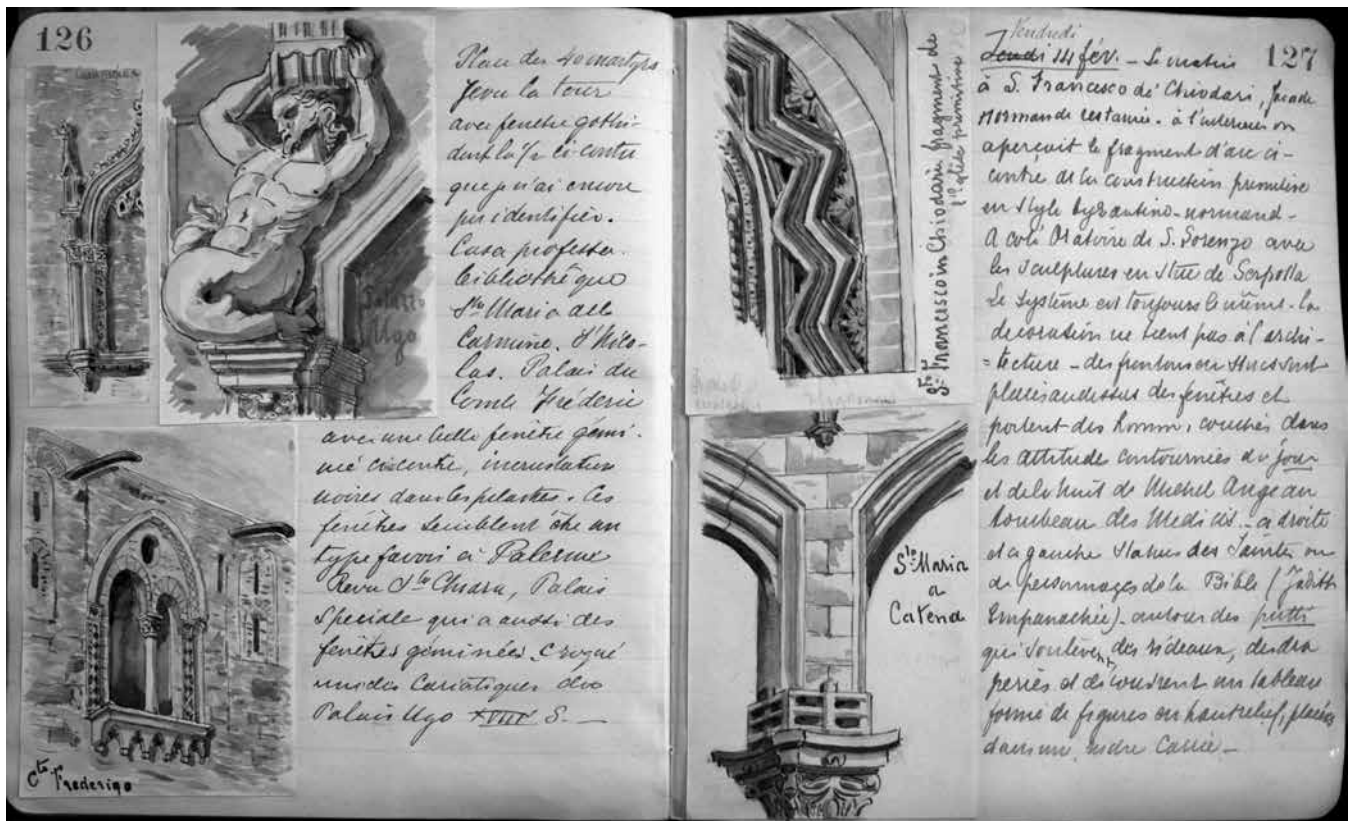 126
Place des 40 martyrs
Revu la tour
avec fenetre gothi-
dont la ci contre
que je n'ai encore
pu identifier.
Casa professa.
bibliothèque
Sta Maria del
Carmine. S. Nico-
las. Palais du
Comte Fréderic
avec une belle fenètre gemi-
née cicontre, incrustation
noires dans les pilastres. Ces
fenêtres semblent être un
type favori à Palerme
Revu Sta Chiara, Palais
Speciale qui a aussi des
fenêtres géminées. Croqué
une des Cariatiques du
Palais Ugo XVIIe S. —
Palazzo
Ugo
Cte Frederigo
Sto Francesco in Chiodari fragment de
l'église primitive
Sta Maria
a
Catena
127
Vendredi
Jeudi 14 fév. — Le matin
à S. Francesco de' Chiodari, facade
Normande restaurée. à l'interieur on
aperçoit le fragment d'arc ci-
contre de la construction primitive
en style byzantino-normand -
A coté Oratoire de S. Lorenzo avec
les sculptures en stuc de Serpotta
Le système est toujours le même - la
decoration ne tient pas à l'archi-
=tecture - des frontons en stucs sont
placés audessus des fenêtres et
portent des homm. couchés dans
les attitude contournées du jour
et de la nuit de Michel Ange au
tombeau des Medicis - a droite
et a gauche statues des Saintes ou
de personnages de la Bible (Judith
Empanachée) - autour des putti
qui soulèvent des rideaux, des dra
peries et découvrent un tableau
formé de figures en haut relief, placées
dans un cadre Carré —